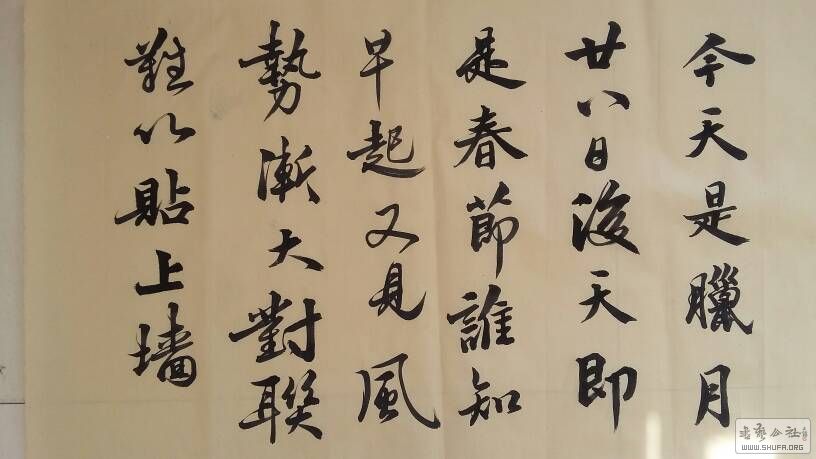 今天是臘月
廿八日後天即
是春節誰知
早起又見風
勢漸大對聯
難以貼上墙
書藝公社
WWW.SHUFA.ORG